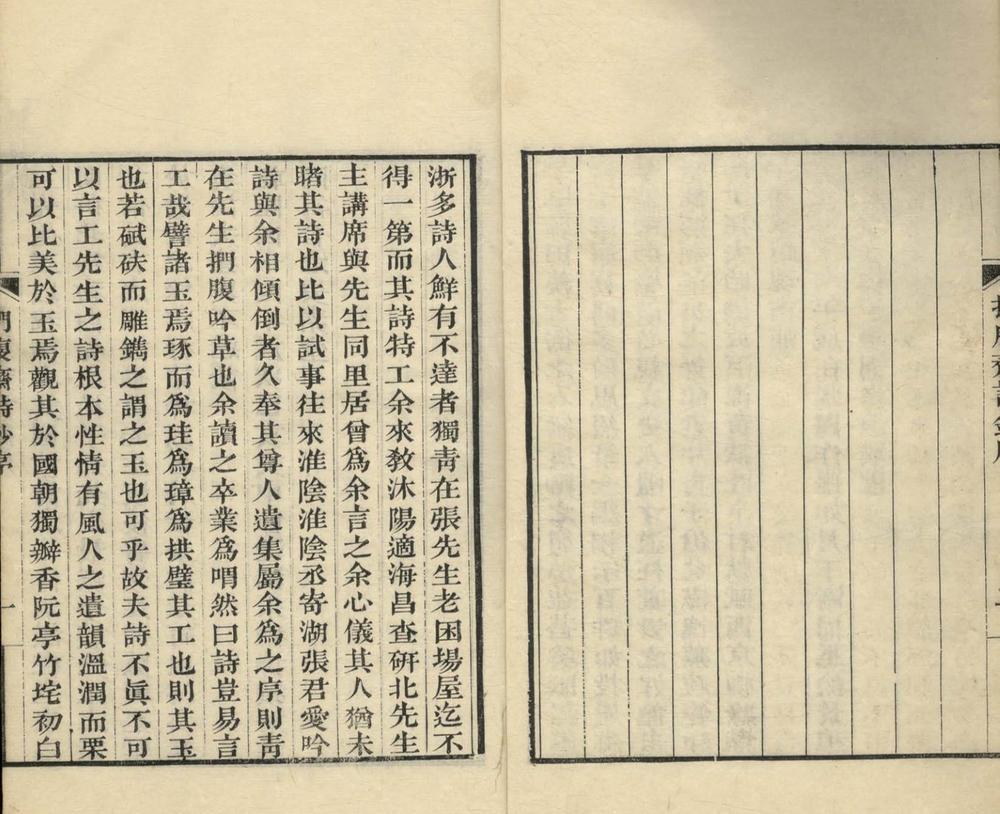 浙多詩人鮮有不達者獨青在張先生老困場屋迄不
得一第而其詩特工余來教沐陽適海昌查硏北先生
主講席與先生同里居曾爲余言之余心儀其人猶未
睹其詩也比以試事往來淮陰淮陰丞寄湖張君愛吟
詩與余相傾倒者久奉其尊人遺集屬余爲之序則靑
在先生捫腹吟草也余讀之卒業爲喟然曰詩豈易言
工哉譬諸玉焉琢而爲珪爲璋爲拱璧其工也則其玉
也若碔砆而雕鐫之謂之玉也可乎故夫詩不眞不可
以言工先生之詩根本性情有風人之遺韻溫潤而栗
可以比美於玉焉觀其於國朝獨瓣香阮亭竹垞初白
捫腹齋詩鈔序
一